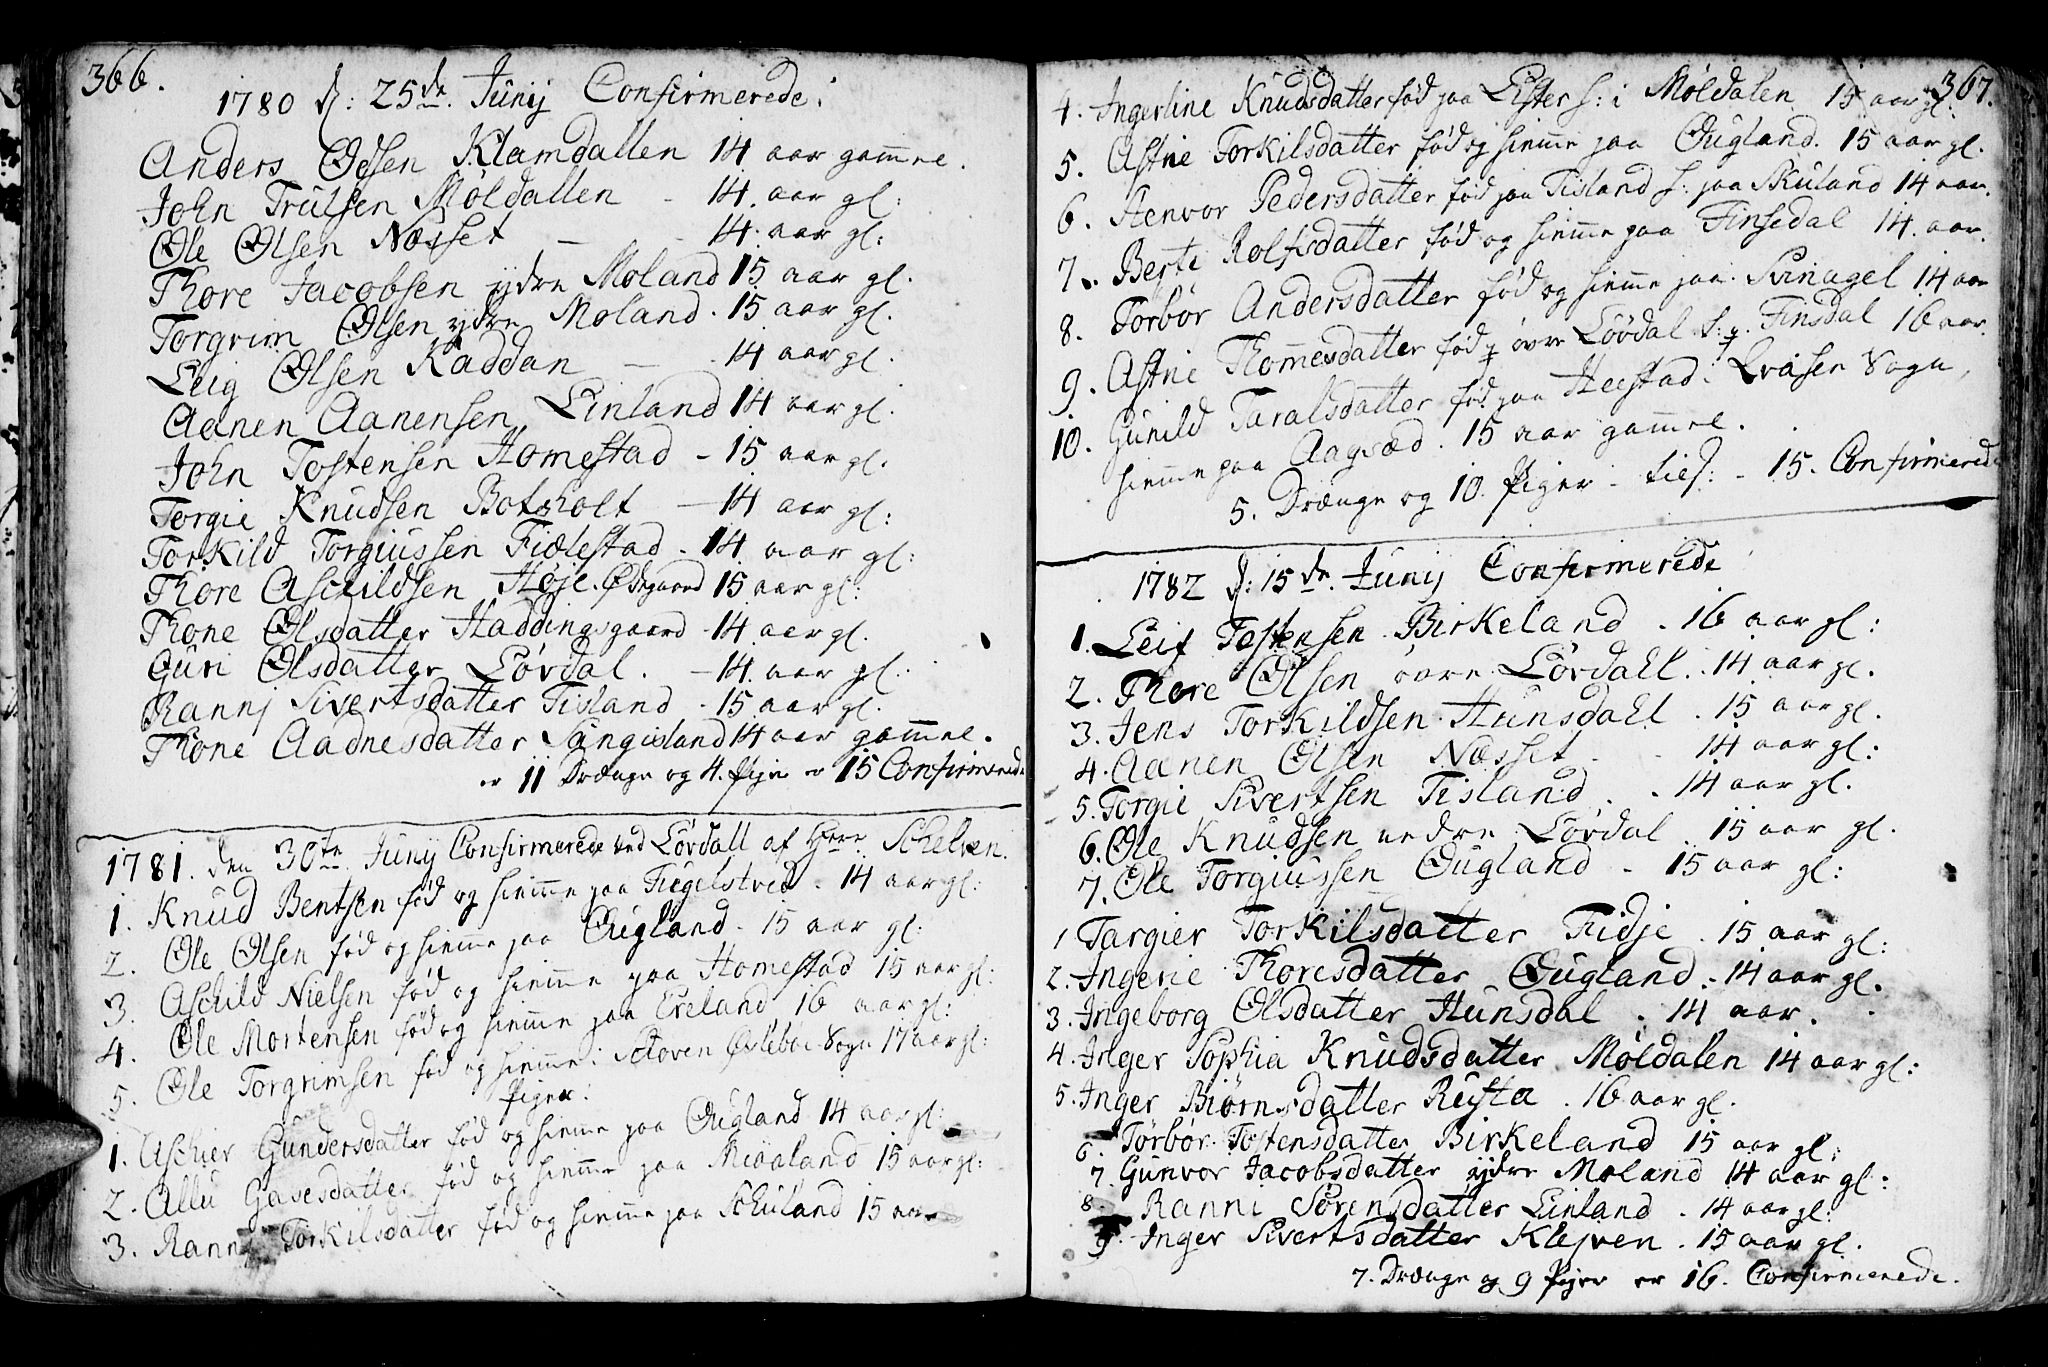 366.
1780 d: 25de Junij Confirmerede:
Anders Olsen Klamdallen 14 aar gamme.
John Trulsen Møldallen - 14. aar gl:
Ole Olsen Næsset - - 14. aar gl:
Thore Jacobsen ydre Moland 15 aar gl.
Torgrim Olsen ydre Moland. 15 aar gl.
Leig Olsen Kaddan - - 14 aar gl.
Aanen Aanensen Einland 14 aar gl.
John Tostensen Homestad - 15 aar gl.
Torgie Knudsen Botholt - 14 aar gl:
Torkild Torgiussen Fidlestad - 14 aar gl:
Thore Aschildsen Høje. Ødegaard 15 aar gl:
Thone Olsdatter Haddingsgaard - 14 aar gl.
Guri Olsdatter Løvdal. - 14. aar gl.
Rannj Sivertsdatter Tisland - 15 aar gl.
Thone Aadnesdatter Sangisland 14 aar gamme.
er 11 Drænge og 4. Piger er 15 Confirmerede
1781. den 30te Junij Confirmerede ved Løvdall af Herr Schelven.
1. Knud Bentsen fød og hieme paa Tiegelstved - 14 aar gl:
2. Ole Olsen fød og hieme paa Øugland - 15 aar gl:
3. Aschild Nielsen fød og hieme paa Homestad 15 aar gl:
4. Ole Mortensen fød og hieme paa Ereland 16 aar gl:
5. Ole Torgrimsen fød og hieme i Schoven Øslebøe Sogn 17 aar gl:
Piger:
1. Aschier Gundersdatter fød og hieme paa Øugland 14 aar gl:
2. Allu Gavesdatter fød og hieme paa Mioaland 15 aar gl:
3. Ranni Torkilsdatter fød og hieme paa Schuland 15 aar
367.
4. Ingerline Knudsdatter fød paa Lister h: i Møldalen 15 aar gl.
5. Astrie Torkilsdatter fød og hieme paa Øugland. 15 aar gl.
6. Stenvor Pedersdatter fød paa Tisland h: paa Skuland 14 aar.
7. Berte Rolfsdatter fød og hieme paa Finsedal 14. aar.
8. Torbør Andersdatter fød og hieme paa Svinagel 14 aar
9. Astrie Thomesdatter fød p øvre Løvdal h: p. Finsdal 16 aar.
10. Gunild Taralsdatter fød paa Heestad i Qvasen Sogn,
hieme paa Aagsæd. 15 aar gammel.
5. Drænge og 10. Piger - tils: - 15. Confirmerede
1782 d: 15de Junij Confirmerede
1. Leif Tostensen Birkeland - 16 aar gl:
2. Thore Olsen øvre Løvdall. 14 aar gl.
3. Jens Torkildsen Hunsdahl . 15 aar gl.
4. Aanen Olsen Næsset - - 14 aar gl:
5. Torgie Sivertsen Tisland . - 14 aar gl.
6. Ole Knudsen nedre Løvdal . 15 aar gl.
7. Ole Torgiussen Øugland - 15 aar gl:
1 Targier Torkilsdatter Fidje . 15 aar gl:
2. Ingerie Thoresdatter Øugland - 14 aar gl.
3. Ingeborg Olsdatter Hunsdal . 14 aar.
4. Inger Sophia Knudsdatter Møldalen 14 aar gl:
5. Inger Biørnsdatter Rusta . 16 aar gl.
6. Torbør Tostensdatter Birkeland 15 aar gl:
7. Gunvor Jacobsdatter ydre Moland 14 aar gl:
8 Ranni Sørensdatter Einland . 14 aar gl:
9. Inger Sivertsdatter Klejven . 15 aar gl.
7. Drænge og 9 Piger er 16. Confirmerede.